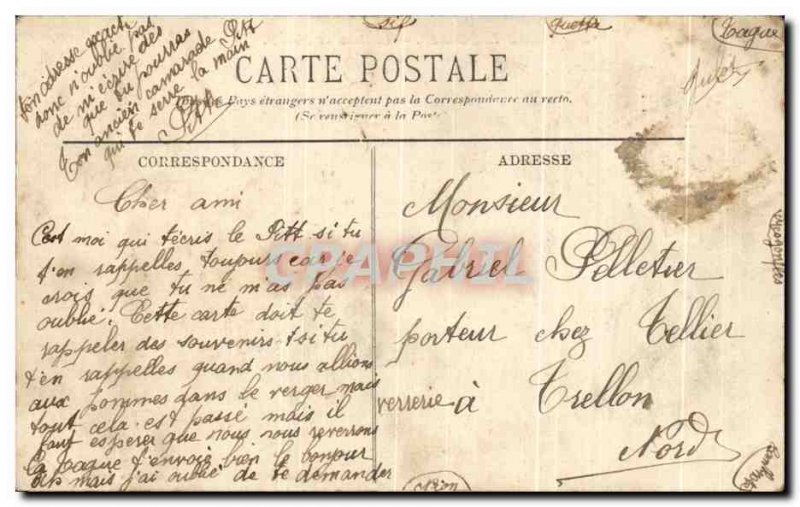 CARTE POSTALE
Tous les Pays étrangers n'acceptent pas la Correspondance au recto.
(Se renseigner à la Poste)
CORRESPONDANCE
Cher ami
C'est moi qui t'écris le Pitt si tu
t'en rappelles toujours car je
crois que tu ne m'as pas
oublié. Cette carte doit te
rappeler des souvenirs. t si tu
t'en rappelles quand nous allions
aux pommes dans le verger mais
tout cela est passé mais il
faut esperer que nous nous reverrons
la Zague t'envoie bien le bonjour
mais j'ai oublié de te demander
ton adresse exacte
donc n'oublie pas
de m'écrire dès
que tu pourras
Ton ancien camarade Pitt
qui te serre la main
Pitt
ADRESSE
Monsieur
Gabriel Pelletier
porteur chez Tellier
verrerie à Trellon
Nord
CPAPHIL